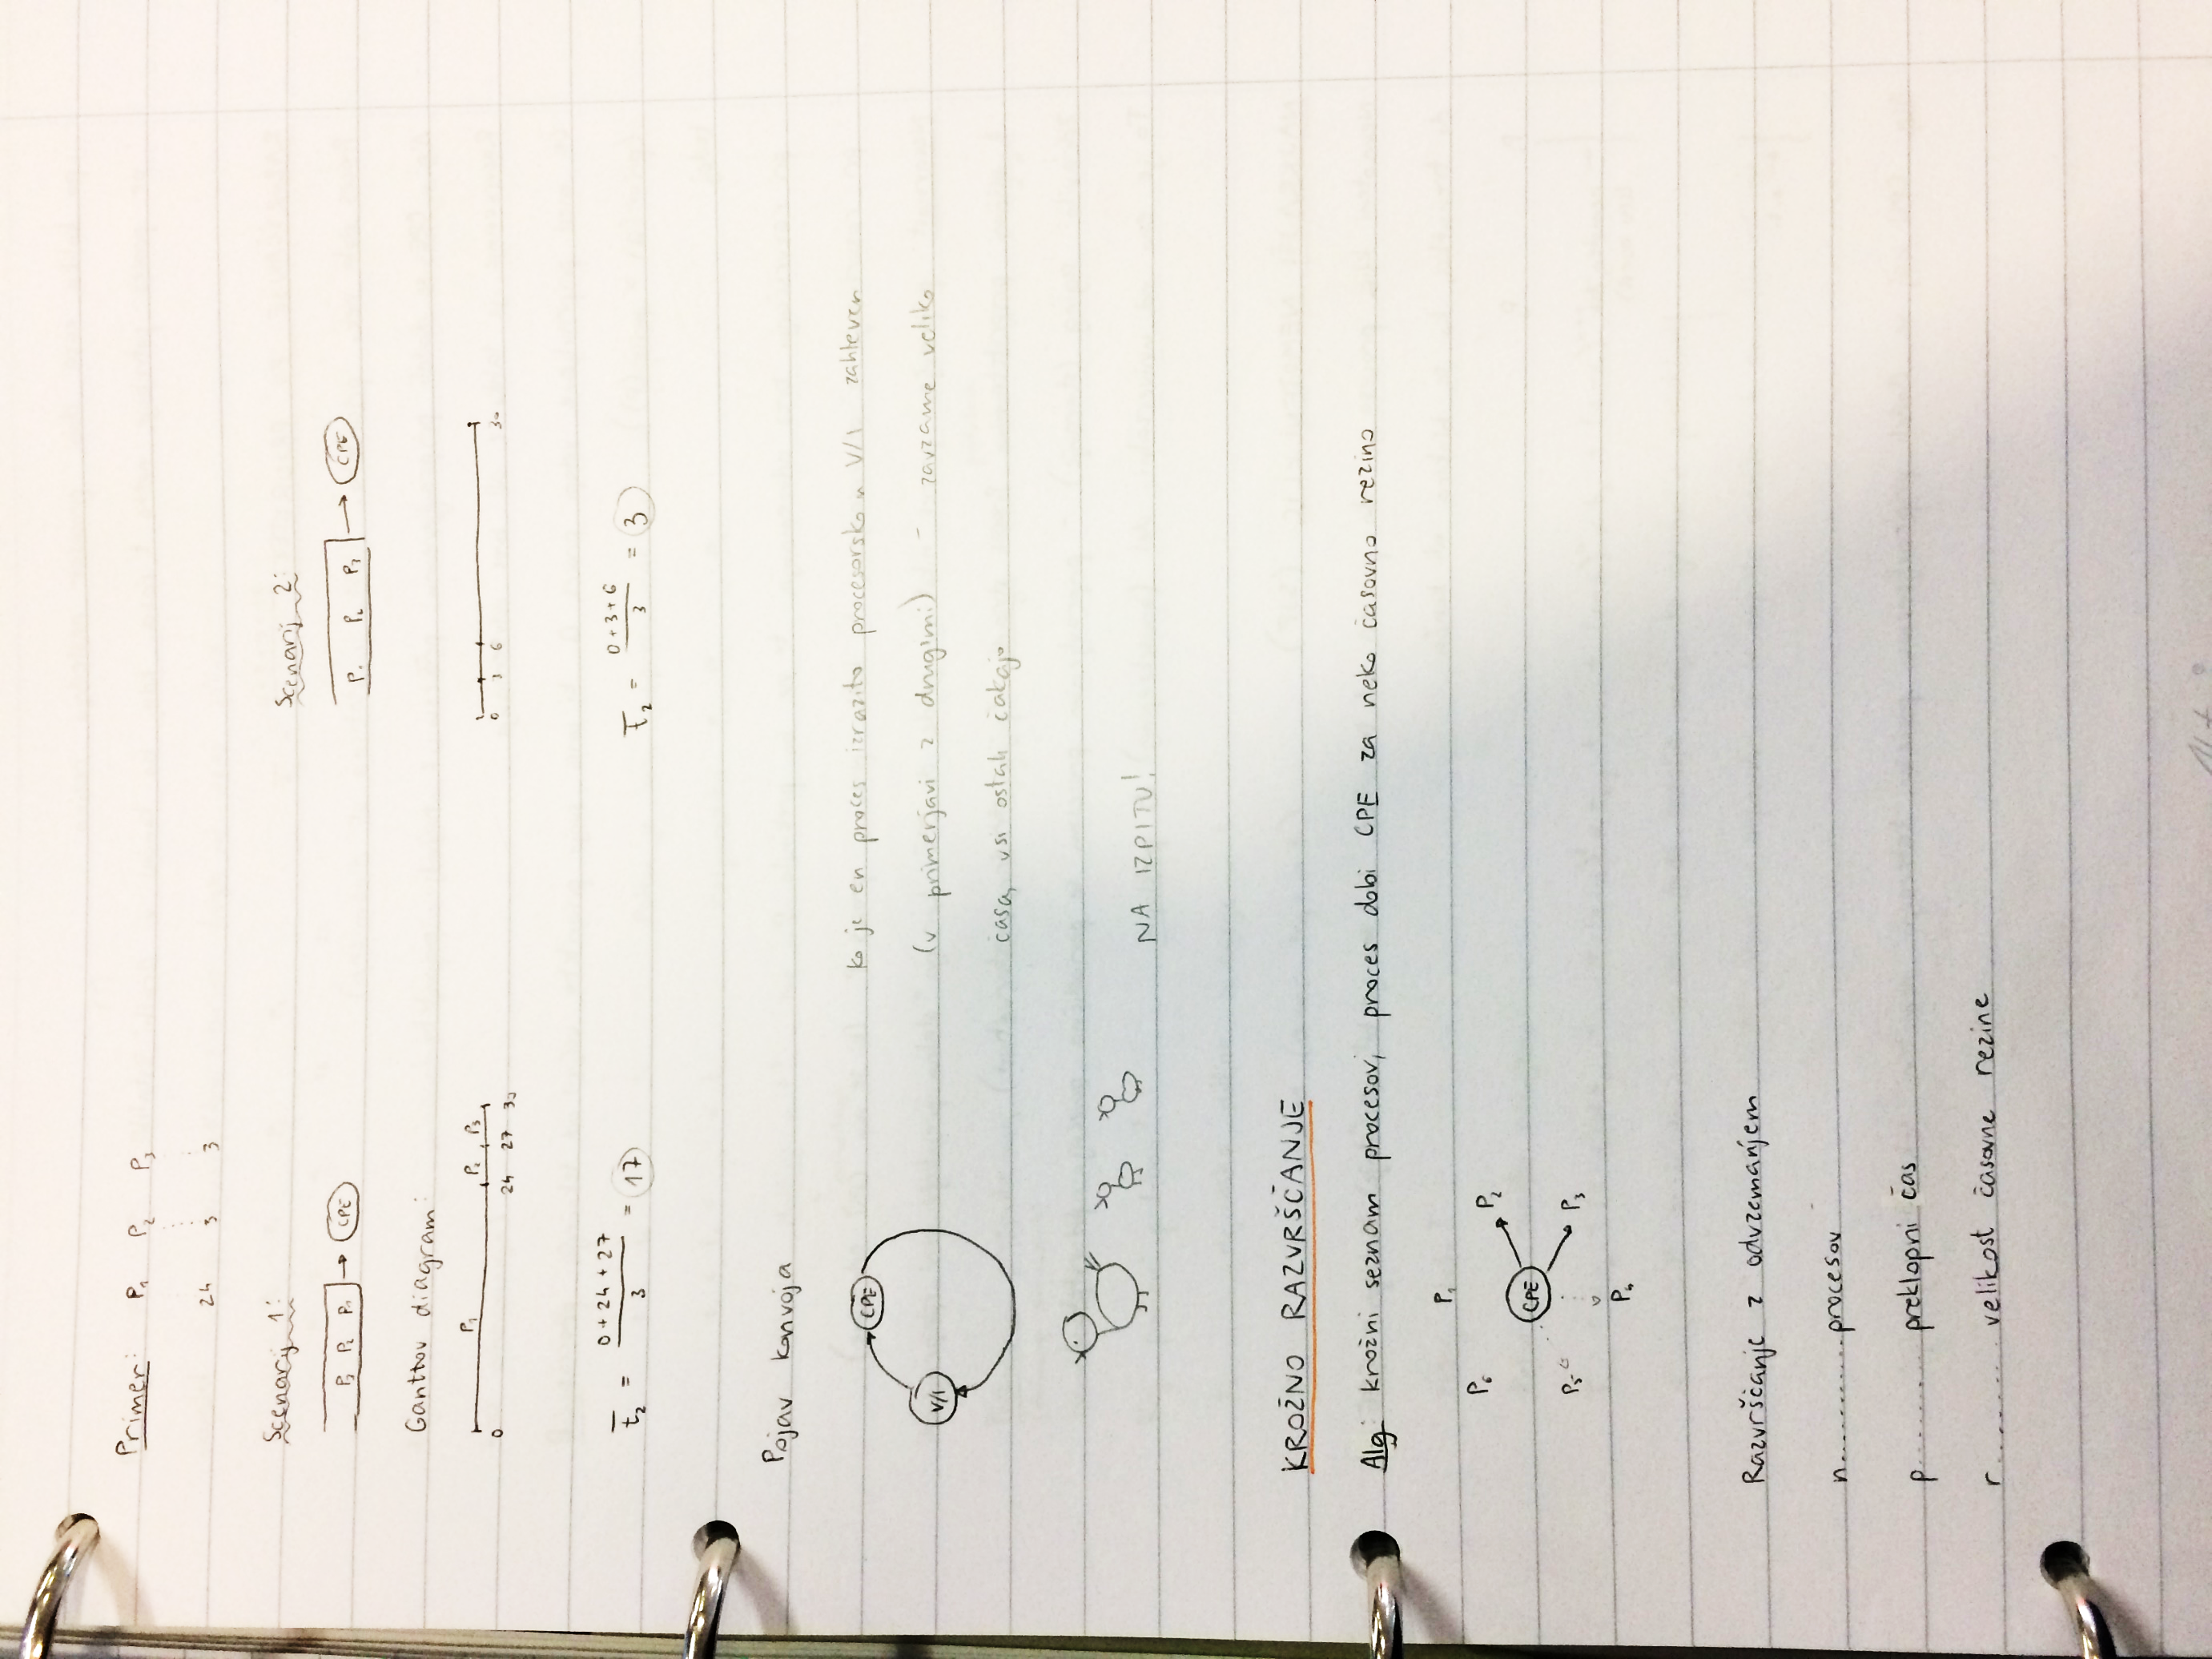 Primer: P1 P2 P3
24 3 3
Scenarij 1:
P3 P2 P1 → CPE
Scenarij 2:
P1 P2 P3 → CPE
Gantov diagram:
P1 P2 P3
0 24 27 30
0 3 6 30
t2 = 0+24+27 / 3 = 17
t2 = 0+3+6 / 3 = 3
Pojav konvoja
CPE
V/I
ko je en proces izrazito procesorsko v V/I zahteven
(v primerjavi z drugimi) - zavzame veliko
časa, vsi ostali čakajo
NA IZPITU!
KROŽNO RAZVRŠČANJE
Alg: krožni seznam procesov, proces dobi CPE za neko časovno rezino
P1
P6 P2
CPE
P5 P3
P4
Razvrščanje z odvzemanjem
n.......... procesov
p.......... preklopni čas
r.......... velikost časovne rezine